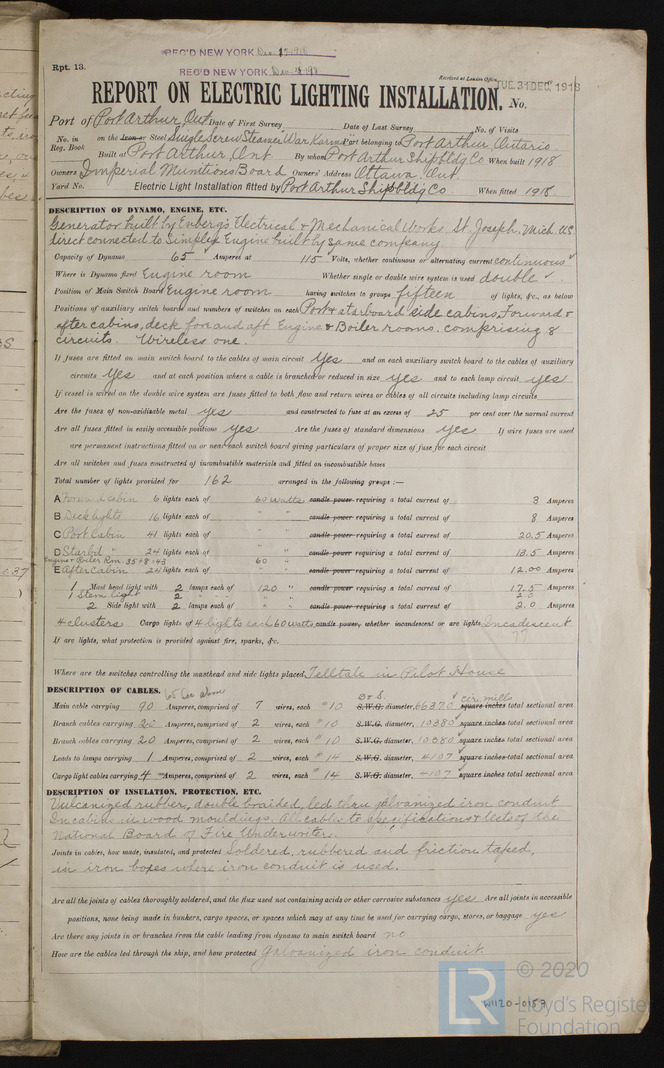 REC'D NEW YORK Dec 17 1918
Rpt. 13.
REC'D NEW YORK Dec
Received at London Office
TUE. 31 DEC. 1918
REPORT ON ELECTRIC LIGHTING INSTALLATION. No.
Port of Port Arthur, Ont Date of First Survey Date of Last Survey No. of Visits
No. in Reg. Book on the Iron or Steel Single Screw Steamer "War Karma" Port belonging to Port Arthur, Ontario
Built at Port Arthur, Ont. By whom Port Arthur Shipbldg Co When built 1918
Owners Imperial Munitions Board Owners' Address Ottawa Ont.
Yard No. Electric Light Installation fitted by Port Arthur Shipbldg Co. When fitted 1918
DESCRIPTION OF DYNAMO, ENGINE, ETC.
Generator built by Enberg's Electrical & Mechanical Works St. Joseph, Mich. U.S.
direct connected to Simplex Engine built by same company
Capacity of Dynamo 65 Amperes at 115 Volts, whether continuous or alternating current continuous
Where is Dynamo fixed Engine room Whether single or double wire system is used double
Position of Main Switch Board Engine room having switches to groups fifteen of lights, &c., as below
Positions of auxiliary switch boards and numbers of switches on each Port & starboard side cabins, Forward &
after cabins, deck fore and aft Engine & Boiler rooms. comprising 8
circuits. Wireless one.
If fuses are fitted on main switch board to the cables of main circuit yes and on each auxiliary switch board to the cables of auxiliary
circuits yes and at each position where a cable is branched or reduced in size yes and to each lamp circuit yes
If vessel is wired on the double wire system are fuses fitted to both flow and return wires or cables of all circuits including lamp circuits
Are the fuses of non-oxidizable metal yes and constructed to fuse at an excess of 25 per cent over the normal current
Are all fuses fitted in easily accessible positions yes Are the fuses of standard dimensions yes If wire fuses are used
are permanent instructions fitted on or near each switch board giving particulars of proper size of fuse for each circuit
Are all switches and fuses constructed of incombustible materials and fitted on incombustible bases
Total number of lights provided for 162 arranged in the following groups :—
A Forward cabin 6 lights each of 60 watts candle power requiring a total current of 3 Amperes
B Deck lights 16 lights each of " " candle power requiring a total current of 8 Amperes
C Port Cabin 41 lights each of " " candle power requiring a total current of 20.5 Amperes
D Starbd " 24 lights each of " " candle power requiring a total current of 13.5 Amperes
Engine & Boiler Rm. 35+8=43 60 "
E After Cabin 24 lights each of " " candle power requiring a total current of 12.00 Amperes
1 Mast head light with 2 lamps each of 120 " candle power requiring a total current of 17.5 Amperes
1 Stern light 2 " " " 2.0
2 Side light with 2 lamps each of " " candle power requiring a total current of 2.0 Amperes
4 clusters Cargo lights of 4 lights each 60 watts candle power, whether incandescent or arc lights Incadescent
If arc lights, what protection is provided against fire, sparks, &c.
Where are the switches controlling the masthead and side lights placed Telltale in Pilot House
DESCRIPTION OF CABLES. 65 see above B & S. cir. mills
Main cable carrying 90 Amperes, comprised of 7 wires, each #10 S.W.G. diameter, 66370 square inches total sectional area
Branch cables carrying 20 Amperes, comprised of 2 wires, each #10 S.W.G. diameter, 10380 square inches total sectional area
Branch cables carrying 20 Amperes, comprised of 2 wires, each #10 S.W.G. diameter, 10380 square inches total sectional area
Leads to lamps carrying 1 Amperes, comprised of 2 wires, each #14 S.W.G. diameter, 4107 square inches total sectional area
Cargo light cables carrying 4 Amperes, comprised of 2 wires, each #14 S.W.G. diameter, 4107 square inches total sectional area
DESCRIPTION OF INSULATION, PROTECTION, ETC.
Vulcanized rubber, double braided, led thru galvanized iron conduit
In cabins in wood mouldings. All cables to specifications & tests of the
National Board of Fire Underwriters.
Joints in cables, how made, insulated, and protected Soldered, rubbered and friction taped,
in iron boxes where iron conduit is used.
Are all the joints of cables thoroughly soldered, and the flux used not containing acids or other corrosive substances yes Are all joints in accessible
positions, none being made in bunkers, cargo spaces, or spaces which may at any time be used for carrying cargo, stores, or baggage yes
Are there any joints in or branches from the cable leading from dynamo to main switch board no
How are the cables led through the ship, and how protected Galvanized iron conduit.
LR © 2020
Lloyd's Register
Foundation
W1120-0157